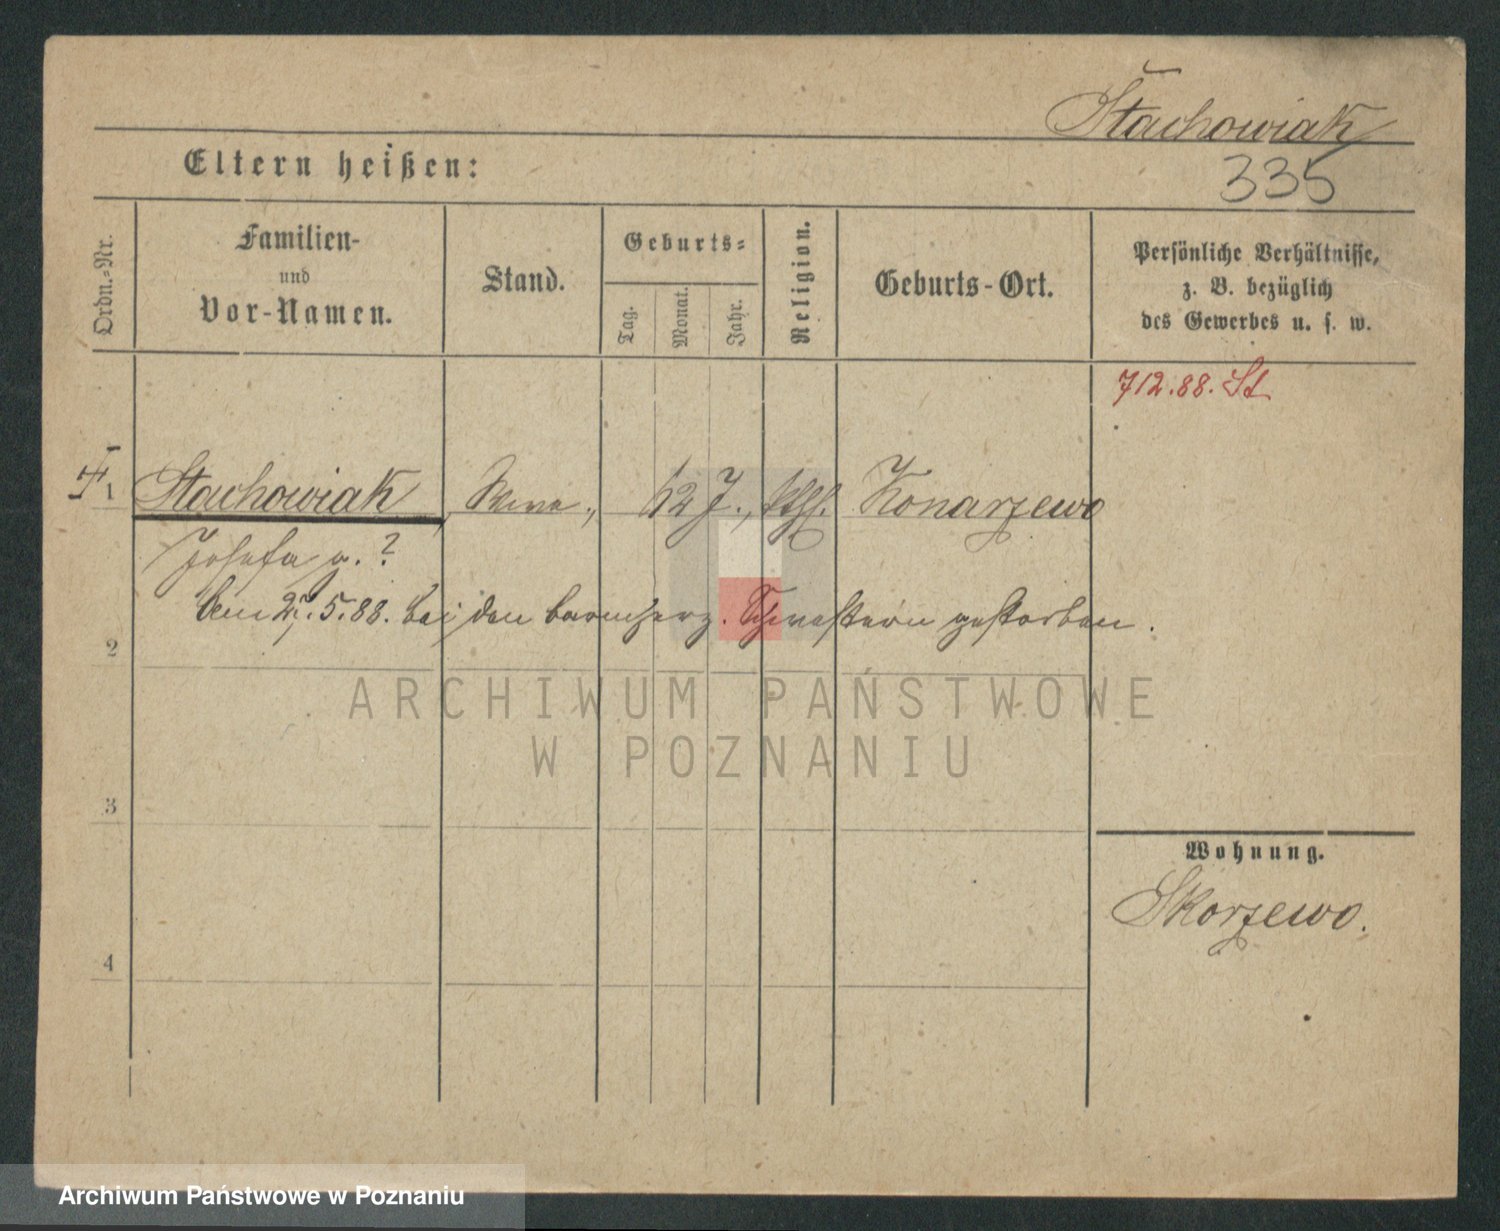 Stachowiak
Eltern heißen:
335
Ordn.-Nr.
Familien-
und
Vor-Namen.
Stand.
Geburts-
Tag.
Monat.
Jahr.
Religion.
Geburts-Ort.
Persönliche Verhältnisse,
z. B. bezüglich
des Gewerbes u. s. w.
712.88. St
1 Stachowiak, Wwe., 62 J., kthl. Konarzewo
Josefa g. ?
Am 27.5.88. bei den barmherz. Schwestern gestorben.
2
ARCHIWUM PAŃSTWOWE
W POZNANIU
3
Wohnung.
Skorzewo.
4
Archiwum Państwowe w Poznaniu